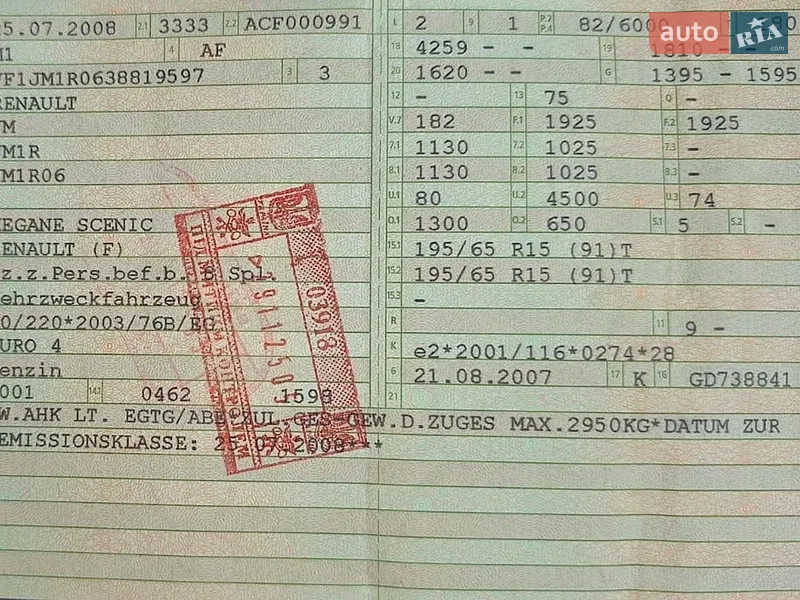 25.07.2008 2.1 3333 2.2 ACF000991
M1 4 AF
VF1JM1R0638819597 3 3
RENAULT
JM
JM1R
JM1R06
MEGANE SCENIC
RENAULT (F)
Fz.z.Pers.bef.b. 8 Spl.
Mehrzweckfahrzeug
70/220*2003/76B/EG
EURO 4
Benzin
0001 14.1 0462 1598
L 2 9 1 P.2 P.4 82/6000
18 4259 - - 19 1810 -
20 1620 - - G 1395 - 1595
12 - 13 75 Q -
V.7 182 F.1 1925 F.2 1925
7.1 1130 7.2 1025 7.3 -
8.1 1130 8.2 1025 8.3 -
U.1 80 U.2 4500 U.3 74
O.1 1300 O.2 650 S.1 5 S.2 -
15.1 195/65 R15 (91)T
15.2 195/65 R15 (91)T
15.3 -
R 11 9 -
K e2*2001/116*0274*28
6 21.08.2007 17 K 16 GD738841
21
W.AHK LT. EGTG/ABE*ZUL.GES-GEW.D.ZUGES MAX.2950KG*DATUM ZUR
EMISSIONSKLASSE: 25.07.2008***
03918
auto RIA .com